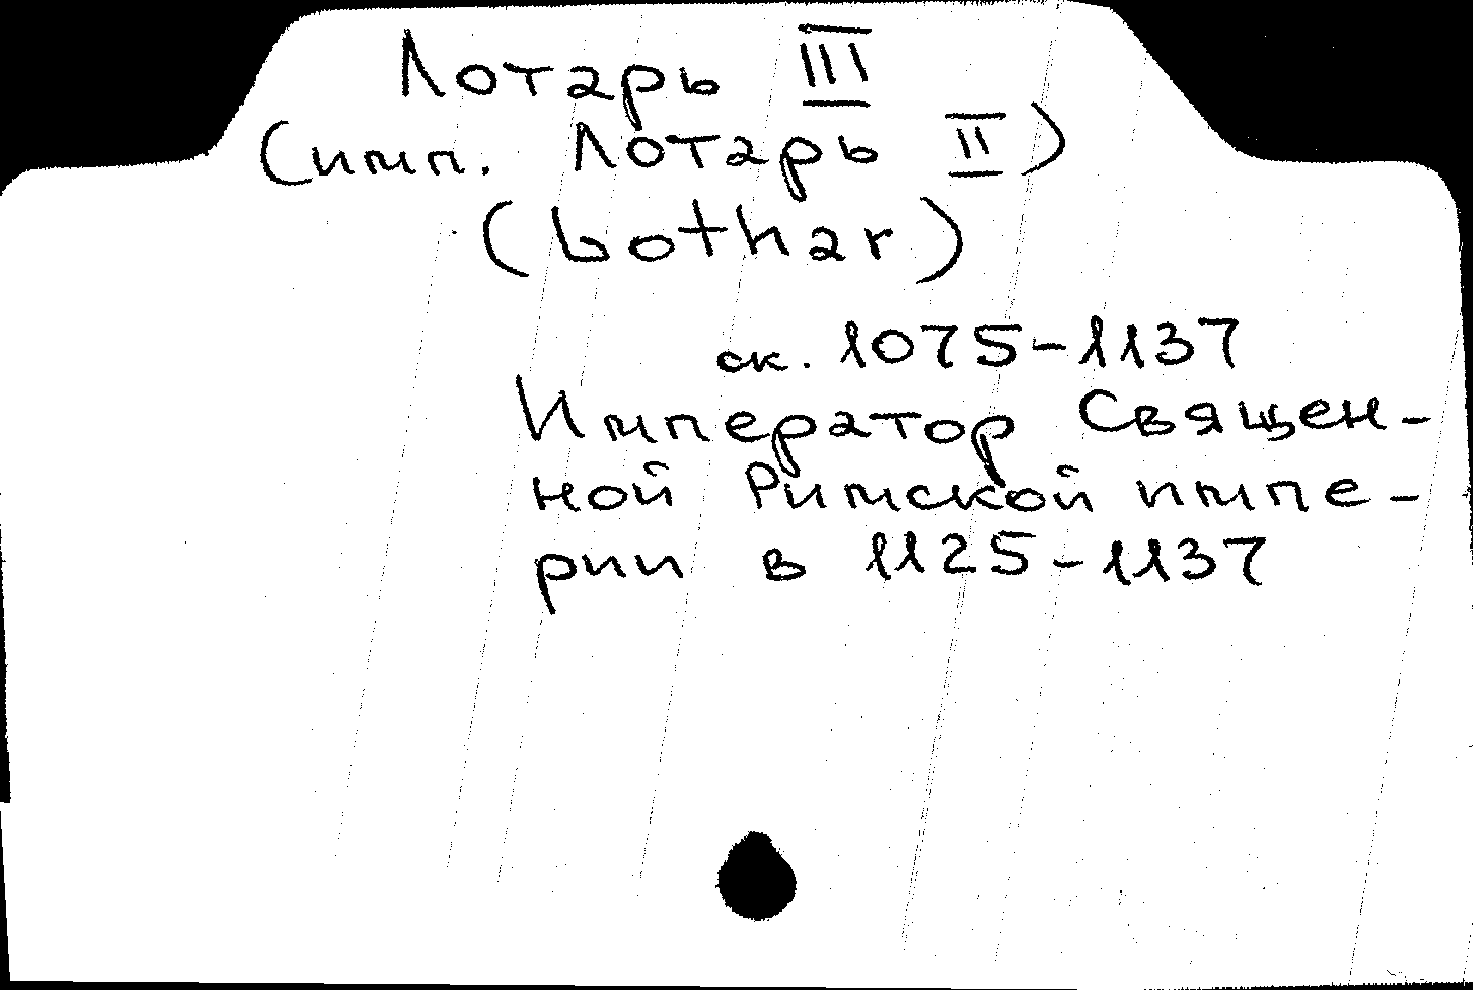 Лотарь III
(имп. Лотарь II)
(Lothar)
ок. 1075-1137
Император Священ-
ной Римской импе-
рии в 1125-1137